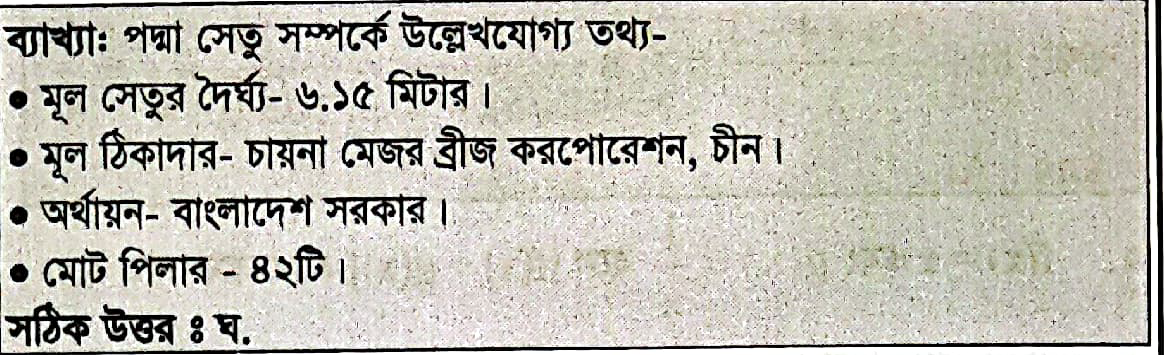 ব্যাখ্যা: পদ্মা সেতু সম্পর্কে উল্লেখযোগ্য তথ্য-
• মূল সেতুর দৈর্ঘ্য- ৬.১৫ মিটার।
• মূল ঠিকাদার- চায়না মেজর ব্রীজ করপোরেশন, চীন।
• অর্থায়ন- বাংলাদেশ সরকার।
• মোট পিলার - ৪২টি।
সঠিক উত্তর ঃ ঘ.